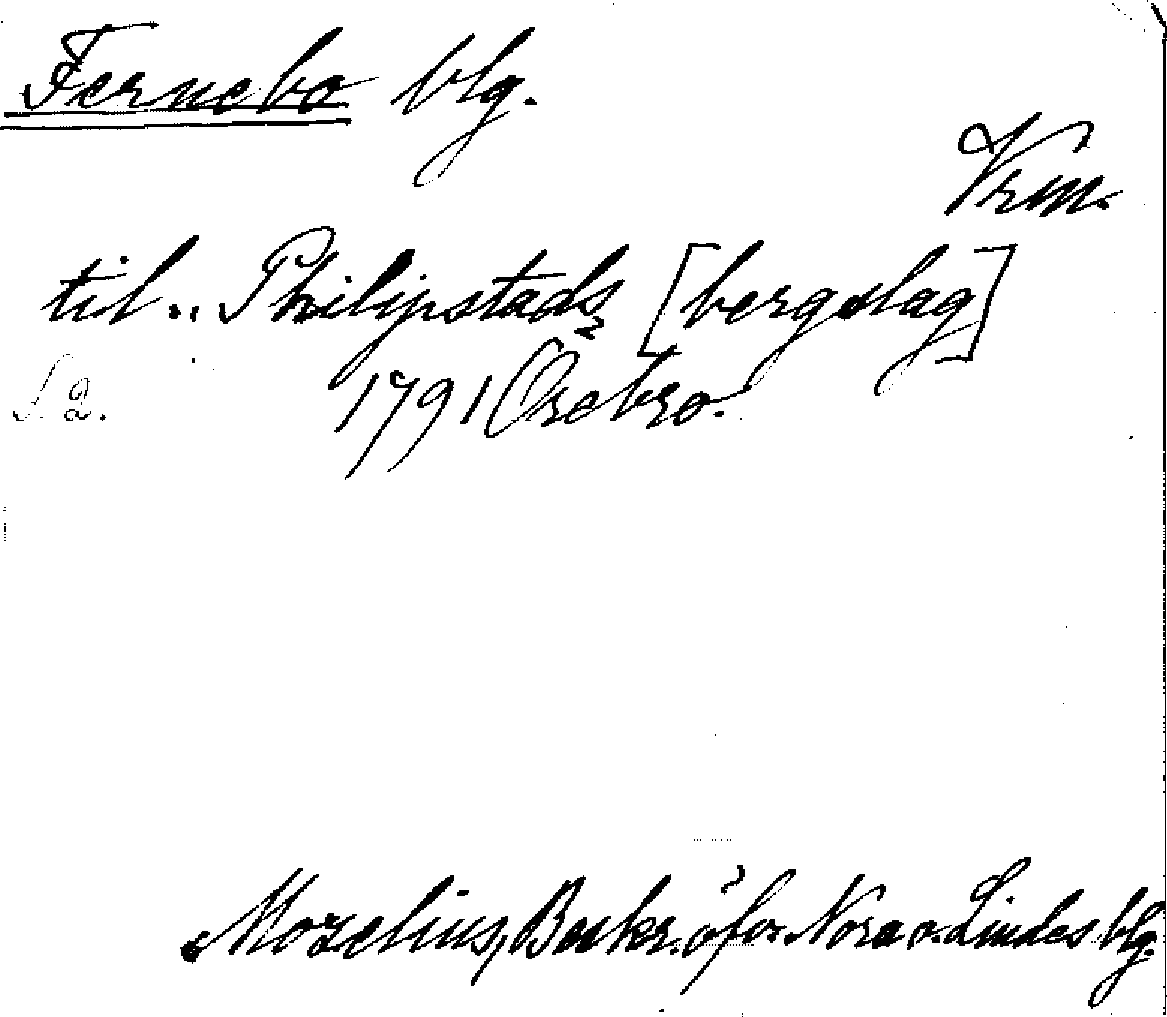 Fernebo blg.
Vrm.
til.. Philipstads [bergslag]
S. 2. 1791 Örebro.
Morelius, Beskr. öfver Nora o. Lindes blg.